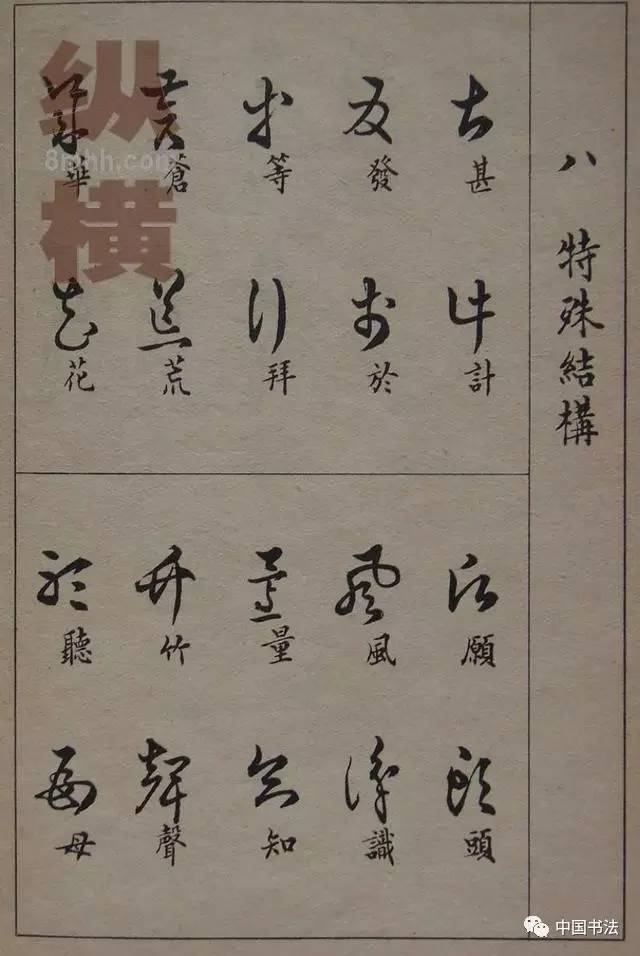 八 特殊結構
甚 計
發 於
等 拜
蒼 荒
華 花
願 頭
風 識
量 知
竹 聲
聽 母
纵横
8mhh.com
中国书法